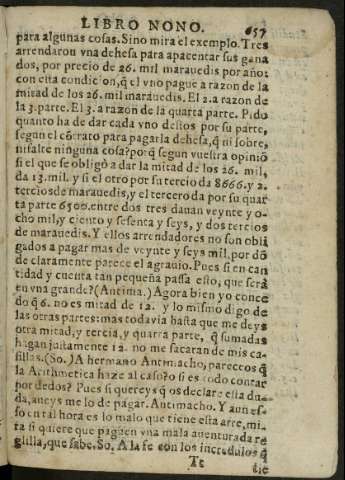 LIBRO NONO. 657
para algunas cosas. Sino mira el exemplo. Tres
arrendaron vna dehesa para apacentar sus gana
dos, por precio de 26. mil marauedis por año:
con esta condicion, q̃ el vno pague a razon de la
mitad de los 26. mil marauedis. El 2. a razon de
la 3. parte. El 3. a razon de la quarta parte. Pido
quanto ha de dar cada vno destos por su parte,
segun el cõcrato para pagar la dehesa, q̃ ni sobre,
ni falte ninguna cosa? porq̃ segun vuestra opiniõ
si el que se obligò a dar la mitad de los 26. mil,
da 13. mil. y si el otro por su tercio da 8666. y 2.
tercios de marauedis, y el tercero da por su quar
ta parte 6500. entre dos tres dauan veynte y o-
cho mil, y ciento y sesenta y seys, y dos tercios
de marauedis. Y ellos arrendadores no son obli
gados a pagar mas de veynte y seys mil, por dõ
de claramente parece el agrauio. Pues si en can
tidad y cuenta tan pequeña passa esto, que serà
en vna grande? (Antima.) Agora bien yo conce
do q̃ 6. no es mitad de 12. y lo mismo digo de
las otras partes: mas todavia hasta que me deys
otra mitad, y tercia, y quarta parte, q̃ sumadas
hagan justamente 12. no me sacaran de mis ca-
sillas. (So.) A hermano Antimacho, pareceos q̃
la Arithmetica haze al caso? o si es todo contar
por dedos? Pues si quereys q̃ os declare esta du-
da, aueys me lo de pagar. Antimacho. Y aun es-
so en tal hora es lo malo que tiene esta arte, mi-
ra si quiere que paguen vna mala auenturada re
glilla, que sabe. So. A la fe con los incredulos q̃
Te die